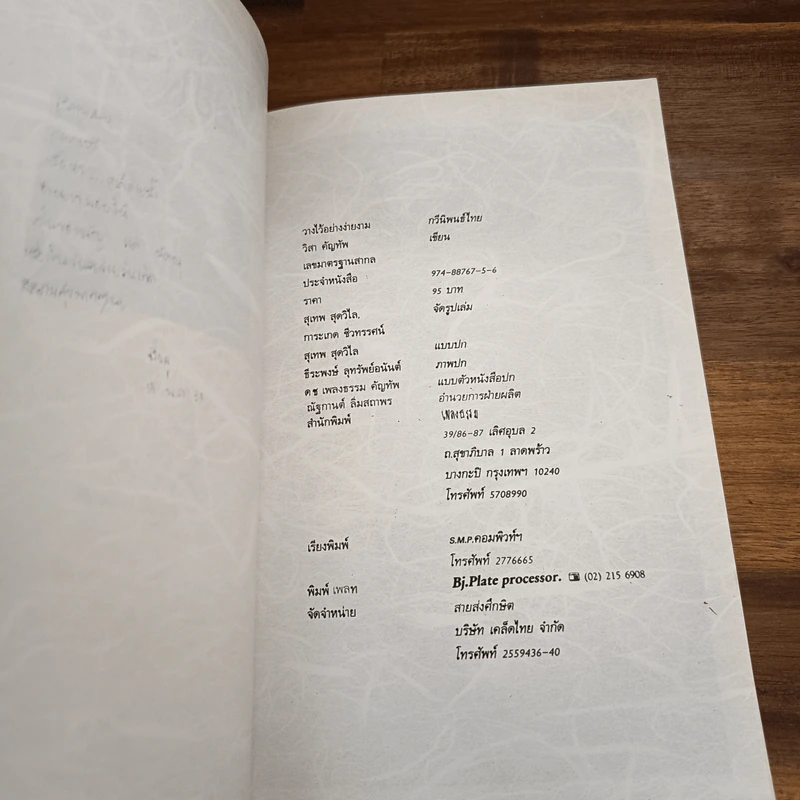 วางไว้อย่างง่ายงาม กวีนิพนธ์ไทย
วิสา คัญทัพ เขียน
เลขมาตรฐานสากล
ประจำหนังสือ 974-88767-5-6
ราคา 95 บาท
สุเทพ สุดวิไล, จัดรูปเล่ม
การะเกต ชีวทรรศน์
สุเทพ สุดวิไล แบบปก
ธีระพงษ์ ลุทรัพย์อนันต์ ภาพปก
ดช เพลงธรรม คัญทัพ แบบตัวหนังสือปก
ณัฐกานต์ ลิ่มสถาพร อำนวยการฝ่ายผลิต
สำนักพิมพ์
39/86-87 เลิศอุบล 2
ถ.สุขาภิบาล 1 ลาดพร้าว
บางกะปิ กรุงเทพฯ 10240
โทรศัพท์ 5708990
เรียงพิมพ์ S.M.P.คอมพิวท์ฯ
โทรศัพท์ 2776665
พิมพ์ เพลท Bj.Plate processor. (02) 215 6908
จัดจำหน่าย สายส่งศึกษิต
บริษัท เคล็ดไทย จำกัด
โทรศัพท์ 2559436-40